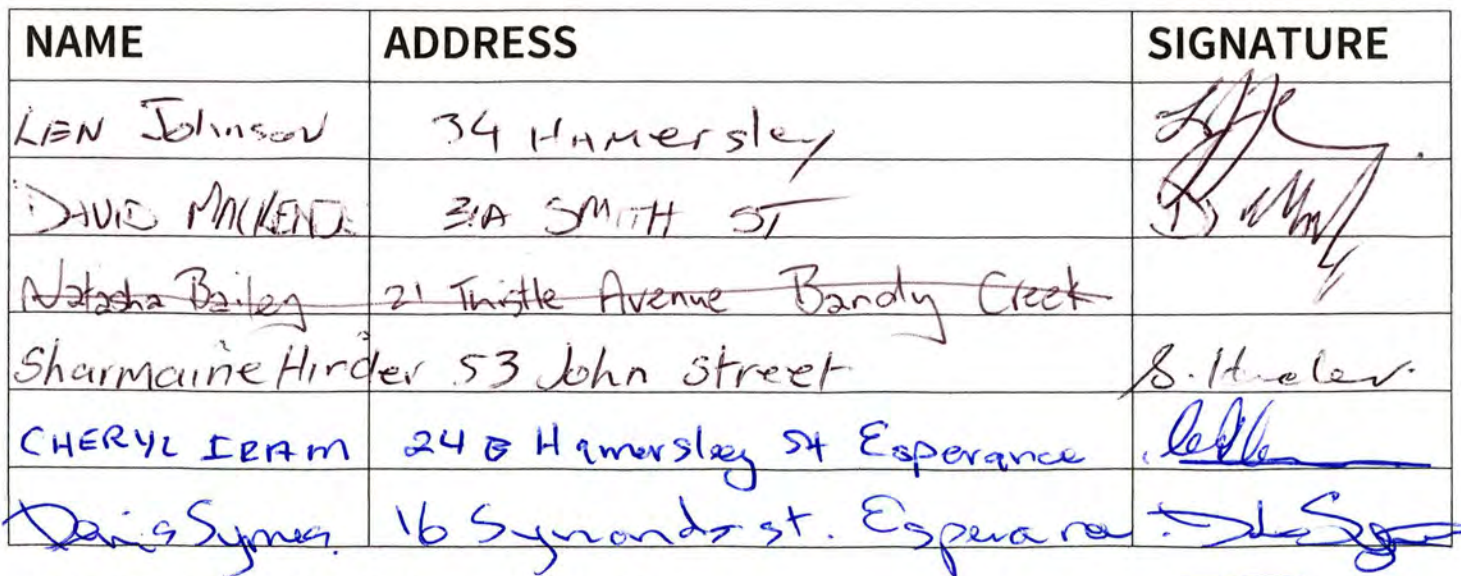 NAME ADDRESS SIGNATURE
LEN Johnson 34 Hamersley
DAVID 31A SMITH ST
Natasha Bailey 21 Thistle Avenue Bandy Creek
Sharmaine Hinder 53 John street S. Hinder.
CHERYL 24 B Hamersley St Esperance
Symes 16 Symonds st.